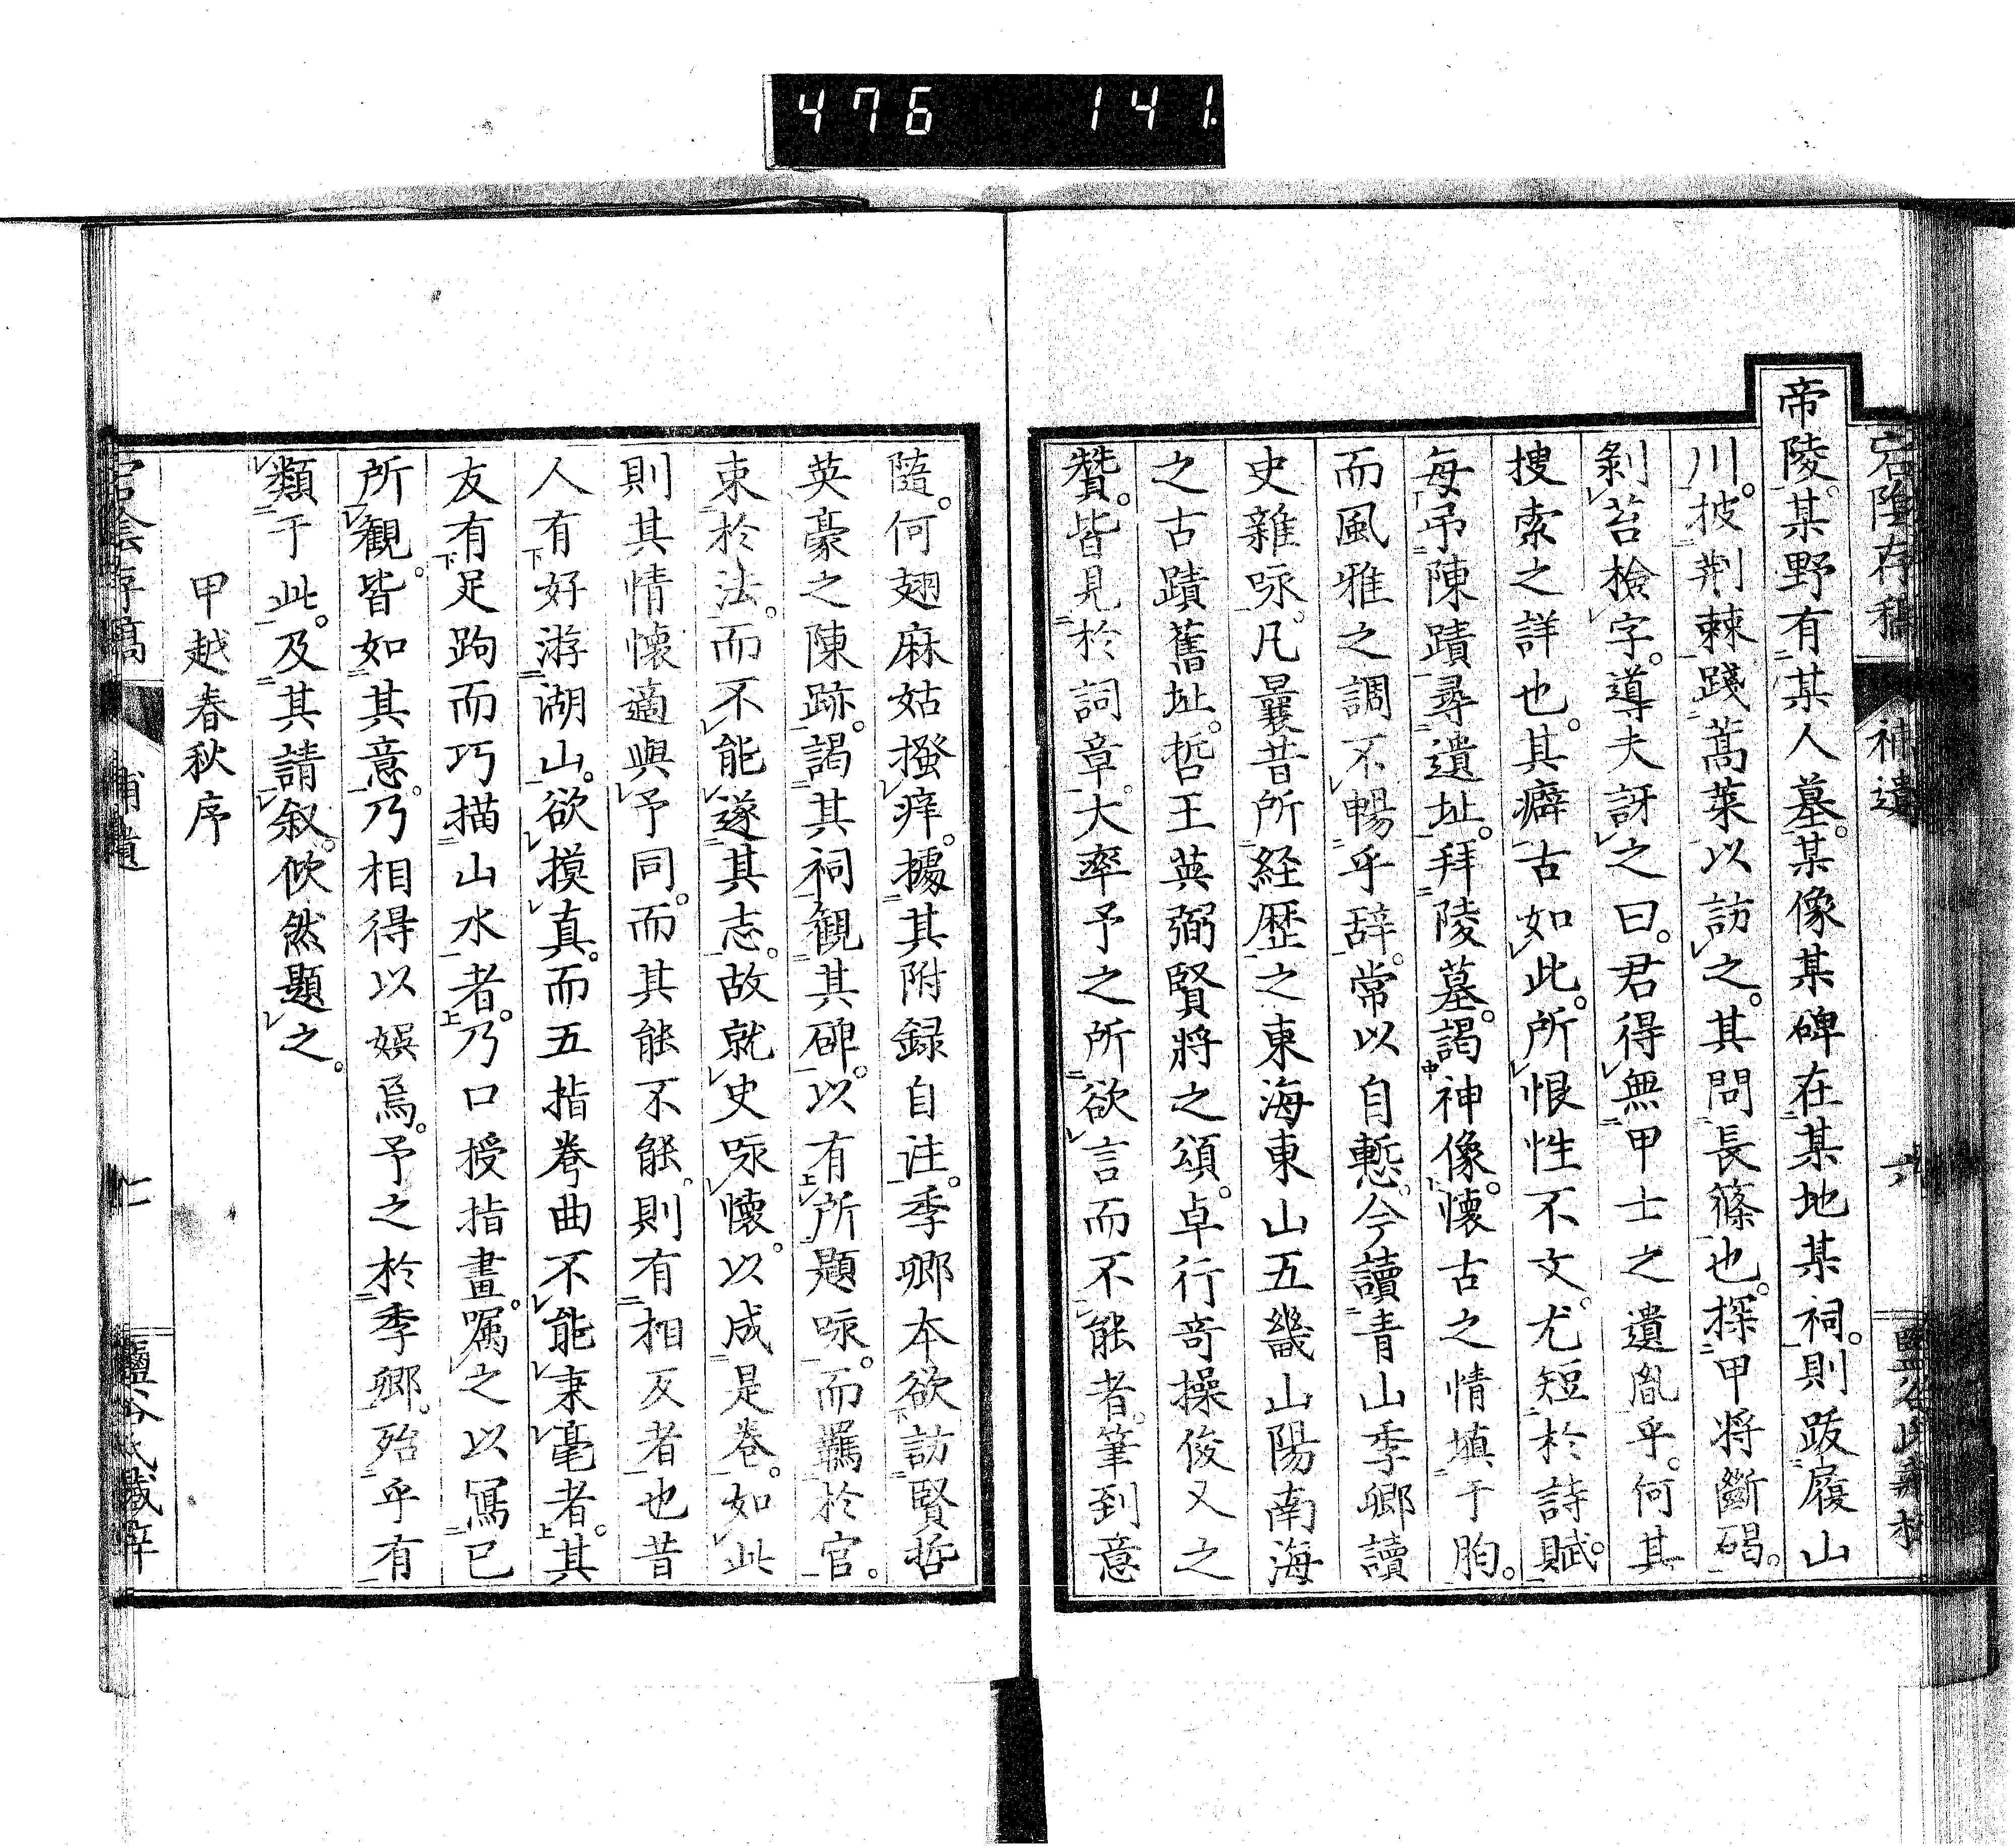 476 141.
宕陰存稿 補遺 六
帝陵。某野有某人墓。某像某碑在某地某祠。則跋履山
川。披荆棘踐蒿萊以訪之。其問長篠也。探甲將斷碣。
剝苔檢字。導夫訝之曰。君得無甲士之遺胤乎。何其
搜索之詳也。其癖古如此。所恨性不文。尤短於詩賦。
每弔陳蹟尋遺址。拜陵墓。謁神像。懷古之情填于胸。
而風雅之調不暢乎辞。常以自慙。今讀青山季卿讀
史雜咏。凡曩昔所経歴之東海東山五畿山陽南海
之古蹟舊址。哲王英弼賢將之頌。卓行奇操俊乂之
贊。皆見於詞章。大率予之所欲言而不能者。筆到意
隨。何翅麻姑搔痒。據其附録自注。季卿本欲訪賢哲
英豪之陳跡。謁其祠觀其碑。以有所題咏。而羈於官。
束於法。而不能遂其志。故就史咏懷。以成是卷。如此
則其情懷適與予同。而其能不能。則有相反者也昔
人有好游湖山。欲摸真。而五指拳曲不能秉毫者。其
友有足跔而巧描山水者。乃口授指畫。嘱之以寫已
所觀。皆如其意。乃相得以娯焉。予之於季卿。殆乎有
類于此。及其請叙。俽然題之。
甲越春秋序
宕陰存稿 補遺 鹽谷氏藏梓